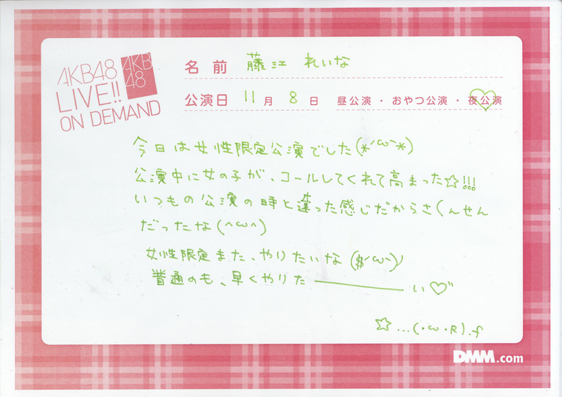 AKB48
LIVE!!
ON DEMAND
AKB
48
名前 藤江 れいな
公演日 11月 8日 昼公演・おやつ公演・夜公演
今日は女性限定公演でした(*´ω`*)
公演中に女の子が、コールしてくれて高まった☆!!!
いつもの公演の時と違った感じだからさ(んせん
だったな(^ω^)
女性限定また、やりたいな($´ω`)ノ
普通のも、早くやりた―――い♡
☆...(・ω・R).f
DMM.com